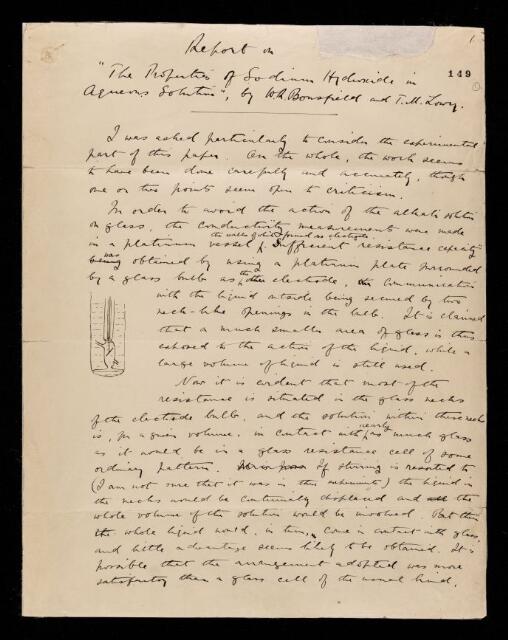 Report on
149
"The Properties of Sodium Hydroxide in
Aqueous Solution", by W.R. Bousfield and T.M. Lowry.
I was asked particularly to consider the experimental
part of this paper. On the whole, the work seems
to have been done carefully and accurately, though
one or two points seem open to criticism.
In order to avoid the action of the alkali solution
on glass, the conductivity measurements were made
the walls of which formed one electrode
in a platinum vessel. Sufficient resistance capacity
was
being obtained by using a platinum plate surrounded
by a glass bulb as the other electrode, communication
with the liquid outside being secured by two
neck-like openings in the bulb. It is claimed
that a much smaller area of glass is thus
exposed to the action of the liquid, while a
large volume of liquid is still used.
Now it is evident that most of the
resistance is situated in the glass necks
of the electrode bulb, and the solution within these necks
is, for a given volume, in contact with nearly as much glass
as it would be in a glass resistance cell of some
ordinary pattern. If stirring is resorted to
(I am not sure that it was in this experiment) the liquid in
the necks would be continually displaced and the
whole volume of the solution would be involved. But then
the whole liquid would, in turn, come in contact with glass,
and little advantage seems likely to be obtained. It is
possible that the arrangement adopted was more
satisfactory than a glass cell of the usual kind,